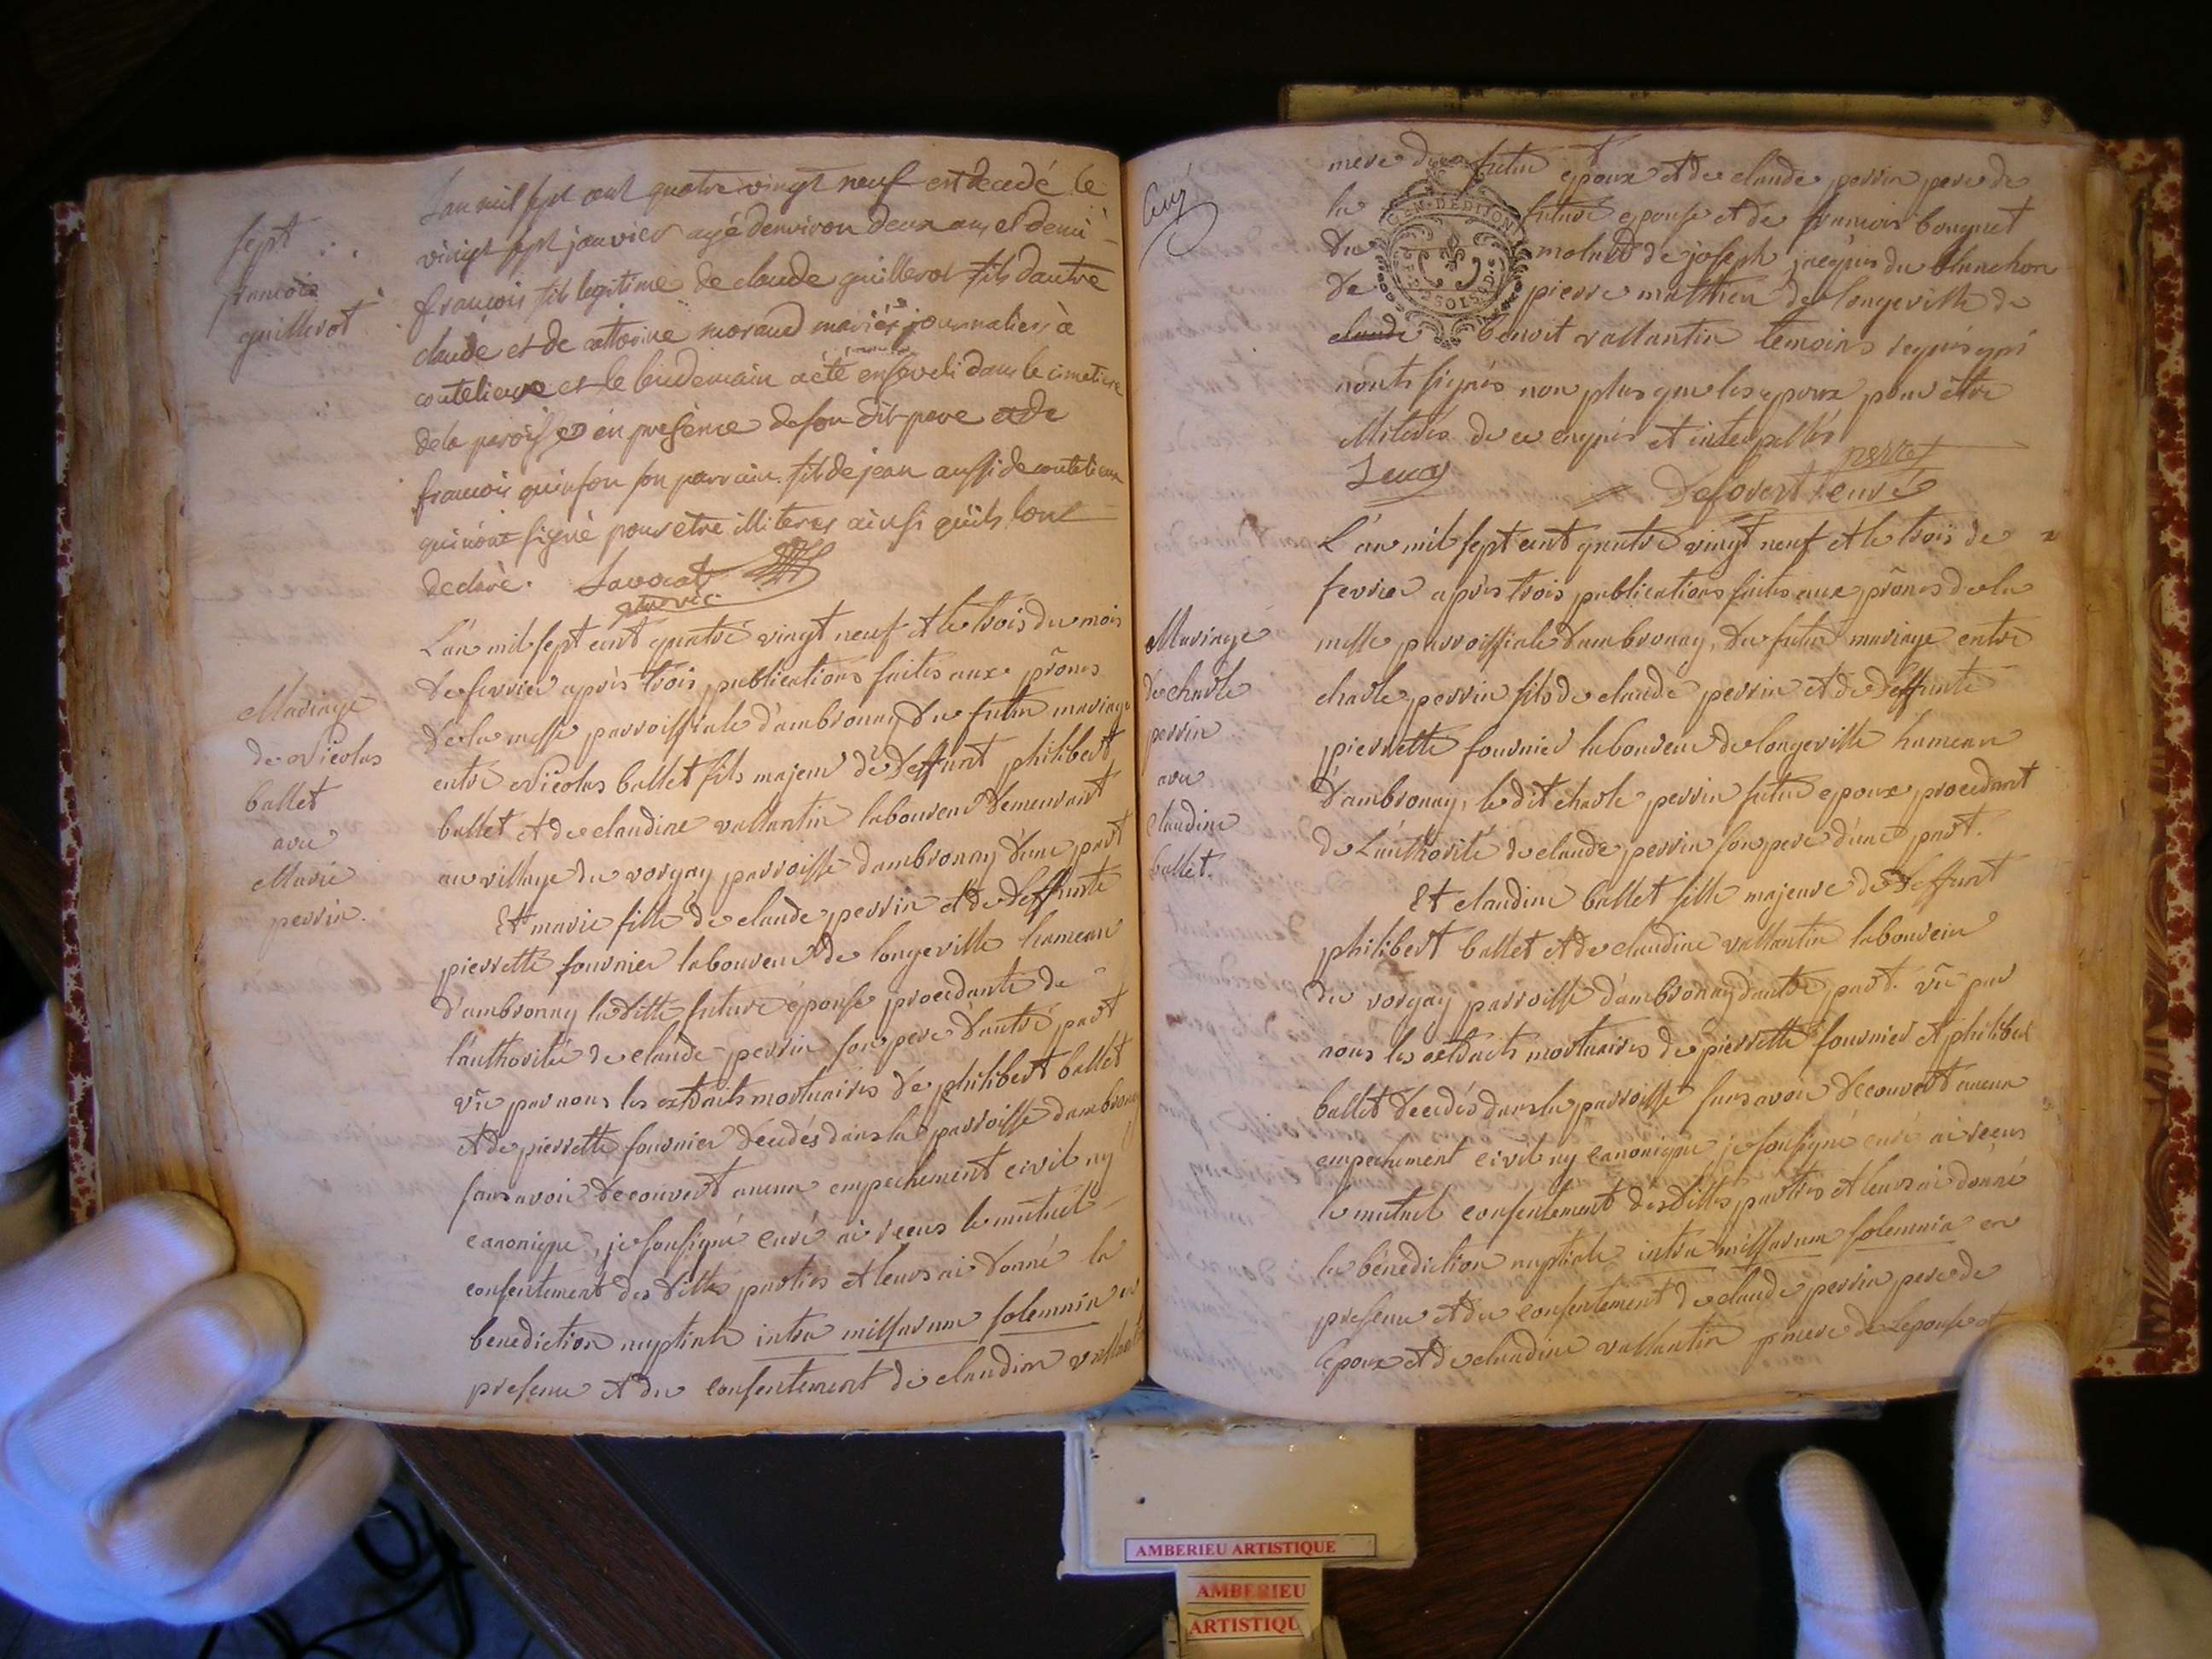 sept
francois
guillerot
Lan mil sept cent quatre vingt neuf est decedé le
vingt sept janvier agé denviron deux ans et demi
francois fils legitime de claude guillerot fils dautre
claude et de catherine moraud mariés journaliers à
coutelieure et le lendemain a été enseveli dans le cimetiere
de la paroisse en presence de son dit pere et de
francois son parrain fils de jean aussi de coutelieure
qui n'ont signé pour etre illiteres ainsi qu'ils l'ont
declaré. Lavocat
vic.
Mariage
de Nicolas
ballet
avec
Marie
perrin.
L'an mil sept cent quatre vingt neuf et le trois du mois
de fevrier après trois publications faites aux prônes
de la messe parroissiale d'ambronay du futur mariage
entre Nicolas ballet fils majeur de deffunt philibert
ballet et de claudine vallantin laboureur demeurant
au village du vorgay parroisse d'ambronay d'une part
Et marie fille de claude perrin et de deffunte
pierrette fournier laboureur de longeville hameau
d'ambronay laditte future épouse procedante de
l'authorité de claude perrin son pere d'autre part
vû par nous les extraits mortuaires de philibert ballet
et de pierrette fournier décedés dans la parroisse dambronay
sans avoir decouvert aucun empechement civil ny
canonique, je soussigné curé ai recus le mutuel
consentement des dittes parties et leurs ai donné la
benediction nuptiale intra missarum solemnia en
presence et du consentement de claudine vallantin
mere du futur epoux et de claude perrin pere de
la future epouse et de francois bouquet
du molard de joseph jacquis du blanchon
de pierre matthieu de longeville de
claude benoit vallantin temoins requis qui
nonts signés non plus que les epoux pour être
illiterés de ce enquis et interpellés
Defovert curé
Mariage
de charle
perrin
avec
claudine
ballet.
L'an mil sept cent quatre vingt neuf et le trois de
fevrier après trois publications faites aux prônes de la
messe parroissiale d'ambronay, du futur mariage entre
charle perrin fils de claude perrin et de deffunte
pierrette fournier laboureur de longeville hameau
d'ambronay, le dit charle perrin futur epoux procedant
de l'authorité de claude perrin son pere d'une part.
Et claudine ballet fille majeure de deffunt
philibert ballet et de claudine vallantin laboureur
du vorgay parroisse d'ambronay d'autre part. vû par
nous les extraits mortuaires de pierrette fournier et philibert
ballet decedés dans la parroisse sans avoir decouvert aucun
empechement civil ny canonique je soussigné curé ai recus
le mutuel consentement des dittes parties et leurs ai donné
la bénediction nuptiale intra missarum solemnia en
presence et du consentement de claude perrin pere de
l'epoux et de claudine vallantin mere de l'epouse et
GEN. DE DIJON
AMBERIEU ARTISTIQUE
AMBERIEU
ARTISTIQU